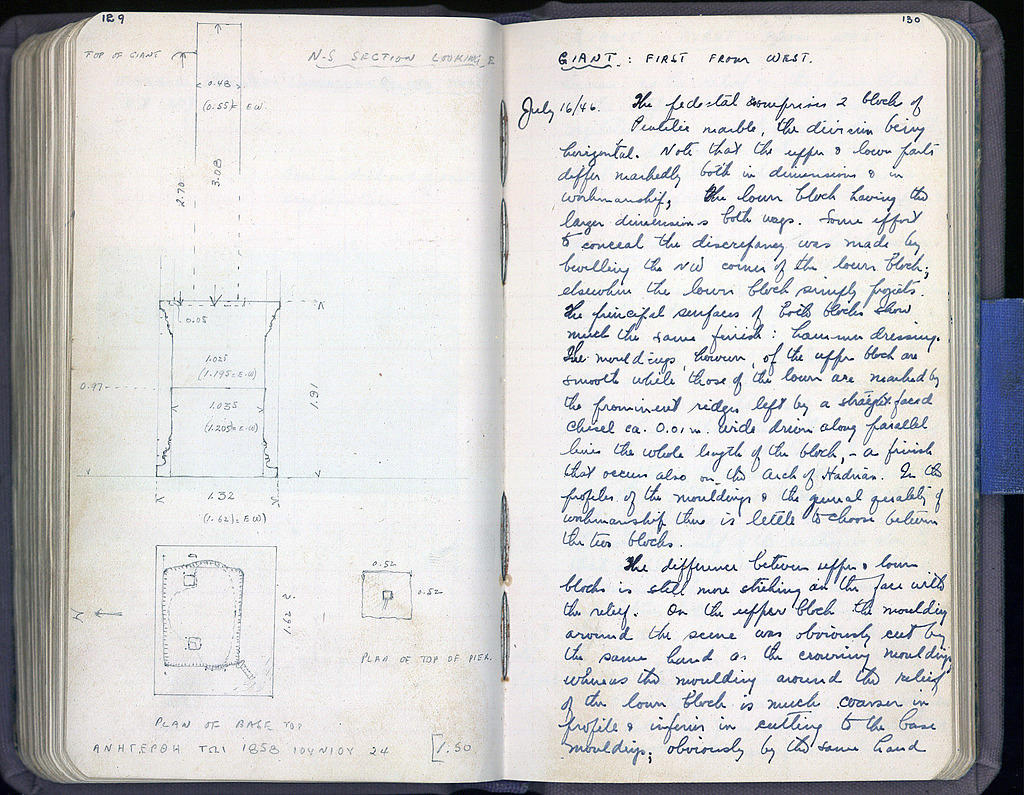 129
TOP OF GIANT
N-S SECTION LOOKING E
0.48
(0.55)= E.W.
2.70
3.08
0.05
1.025
(1.195=E.W)
0.97
1.035
(1.205=E.W)
1.91
1.32
(1.62)=E.W)
N
1.62
0.52
0.52
PLAN OF TOP OF PIER.
PLAN OF BASE TOP
ΑΝΗΓΕΡΘΗ ΤΩΙ 1858 ΙΟΥΝΙΟΥ 24
1.50
130
GIANT: FIRST FROM WEST.
July 16/46. The pedestal comprises 2 blocks of
Pentelic marble, the division being
horizontal. Note that the upper & lower parts
differ markedly both in dimensions & in
workmanship, the lower block having the
larger dimensions both ways. Some effort
to conceal the discrepancy was made by
bevelling the NW corner of the lower block;
elsewhere the lower block simply projects.
The principal surfaces of both blocks show
much the same finish: hammer dressing.
The mouldings, however, of the upper block are
smooth while those of the lower are marked by
the prominent ridges left by a straight faced
chisel ca. 0.01 m. wide driven along parallel
lines the whole length of the block, - a finish
that occurs also on the Arch of Hadrian. In the
profiles of the mouldings & the general quality of
workmanship there is little to choose between
the two blocks.
The difference between upper & lower
blocks is still more striking on the face with
the relief. On the upper block the moulding
around the scene was obviously cut by
the same hand as the crowning moulding,
whereas the moulding around the relief
of the lower block is much coarser in
profile & inferior in cutting to the base
mouldings; obviously by the same hand